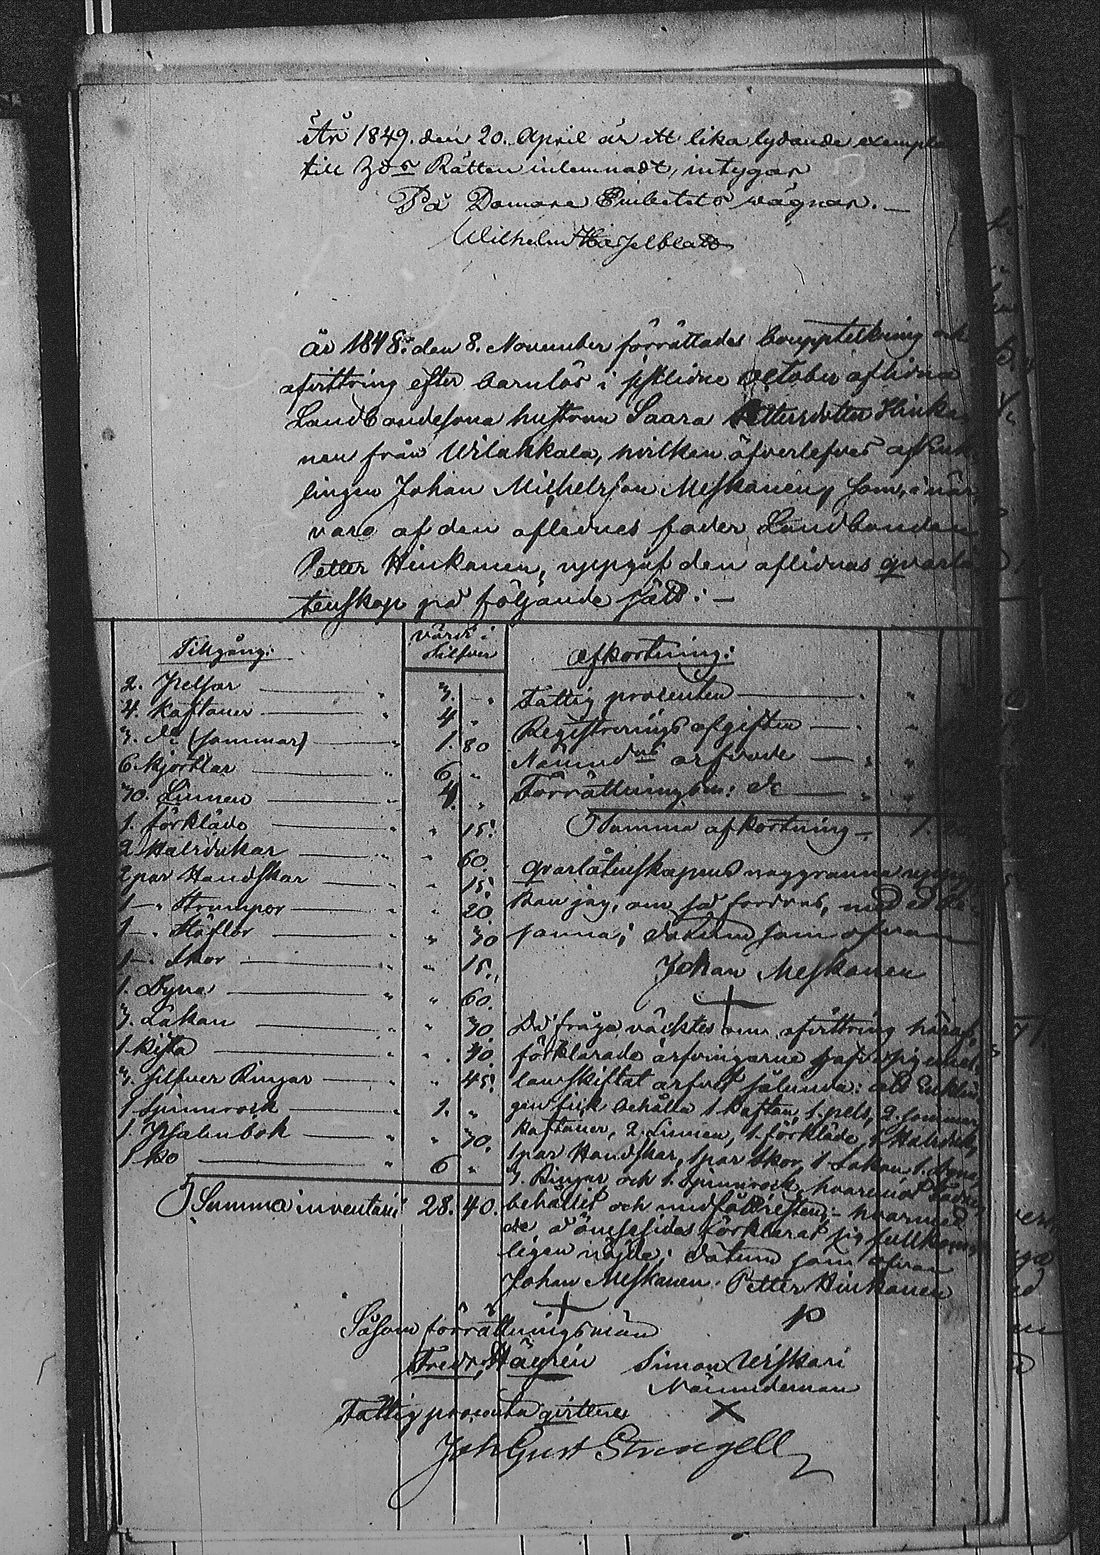 År 1849. den 20. April är ett lika lydande exemplar
till Hdsn Rätten inlemnadt, intygar
På Domare Embetets vägnar. —
Wilhelm Hasselblatt
År 1848. den 8. November förrättades bouppteckning och
afvittring efter barnlös i sistlidne October aflidna
Landbondesona hustrun Saara Pettersdotter Hinka
nen från Wilakkala, hvilken öfverlefves af Enk
lingen Johan Michelsson Meskanen, som, i när
varo af den aflednes fader Landbonden
Petter Hinkanen, uppgaf den aflidnas qvarlå
tenskap på följande sätt: —
Tillgång:
värde i
Silfver
2. Pelsar — 3. -
4. Kaftaner — 4 "
3. do (sommar) — 1. 80
6 Kjortlar — 6 "
10. Linnen — 4. "
1. förkläde — " 15.
2 Halsdukar — " 60.
2 par Handskar — " 15.
1 —" Strumpor — " 20
1 —" Töfflor — " 30
1 —" Skor — " 15.
1. Dyna — " 60.
3. Lakan — " 30
1 Kista — " 40.
3. silfver Ringar — " 45.
1 Spinnrock — 1. "
1. Psalmbok — " 30.
1 Ko — 6 "
Summa inventarii 28. 40.
Afkortning:
Fattig procenten —
Registrerings afgiften —
Nämndens arfvode —
Förrättningsm: do —
Summa afkortning — 1.
Qvarlåtenskapens noggranna uppgift
kan jag, om så fordras, med ed be-
sanna; datum som ofvan
Johan Meskanen
Då fråga väcktes om afvittring häraf,
förklarade arfvingarne hafva sig emel
lan skiftat arfvet sålunda: att Enklin
gen fick behålla 1 kaftan, 1. pels, 2. sommar
kaftaner, 2. Linnen, 1. förkläde, 1 Halsduk,
1 par Handskar, 1 par skor, 1 Lakan, 1. dyna,
3. Ringar och 1. Spinnrock, hvaremot fadren
behåller och undfått resten; — hvarmed
de å ömsesidor förklarat sig fullkom-
ligen nöjde; datum som ofvan
Johan Meskanen. Petter Hinkanen
Såsom förrättningsmän
Fredr. Hägrén Simon Wiskari
Nämndeman
Fattigprocenten qvitteras
Joh Gust Strengell